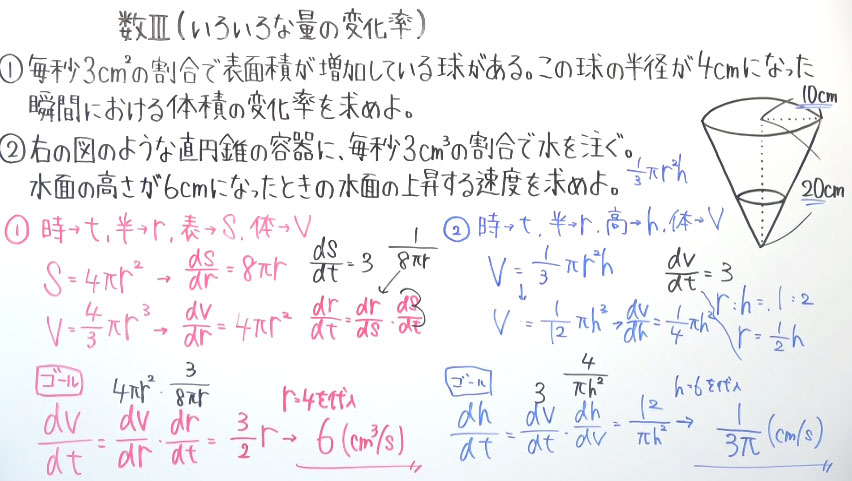 数Ⅲ(いろいろな量の変化率)
① 毎秒3cm²の割合で表面積が増加している球がある。この球の半径が4cmになった
瞬間における体積の変化率を求めよ。
② 右の図のような直円錐の容器に、毎秒3cm³の割合で水を注ぐ。
水面の高さが6cmになったときの水面の上昇する速度を求めよ。
1/3 πr²h
10cm
20cm
① 時→t, 半→r, 表→S, 体→V
S=4πr² → ds/dr = 8πr
ds/dt = 3
1/8πr
V=4/3 πr³ → dv/dr = 4πr²
dr/dt = dr/ds · ds/dt
3
ゴール
4πr² · 3/8πr
r=4を代入
dv/dt = dv/dr · dr/dt = 3/2 r → 6(cm³/s)
② 時→t, 半→r, 高→h, 体→V
V=1/3 πr²h
dv/dt = 3
↓
r:h=1:2
V=1/12 πh³ → dv/dh = 1/4 πh²
r=1/2 h
ゴール
3
4/πh²
h=6を代入
dh/dt = dv/dt · dh/dv = 12/πh² → 1/3π (cm/s)